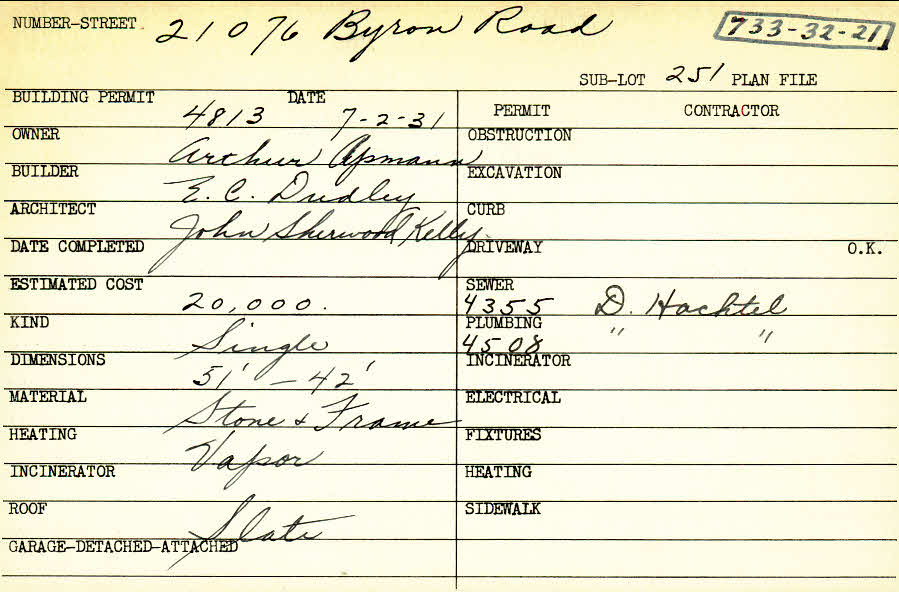 NUMBER-STREET 21076 Byron Road 733-32-21
SUB-LOT 251 PLAN FILE
BUILDING PERMIT DATE PERMIT CONTRACTOR
4813 7-2-31
OWNER OBSTRUCTION
Arthur Apmann
BUILDER EXCAVATION
E. C. Dudley
ARCHITECT CURB
John Sherwood Kelly
DATE COMPLETED DRIVEWAY O.K.
ESTIMATED COST SEWER
20,000. 4355 D. Hachtel
KIND PLUMBING " "
Single 4508
DIMENSIONS INCINERATOR
51' - 42'
MATERIAL ELECTRICAL
Stone & Frame
HEATING FIXTURES
Vapor
INCINERATOR HEATING
ROOF SIDEWALK
Slate
GARAGE-DETACHED-ATTACHED